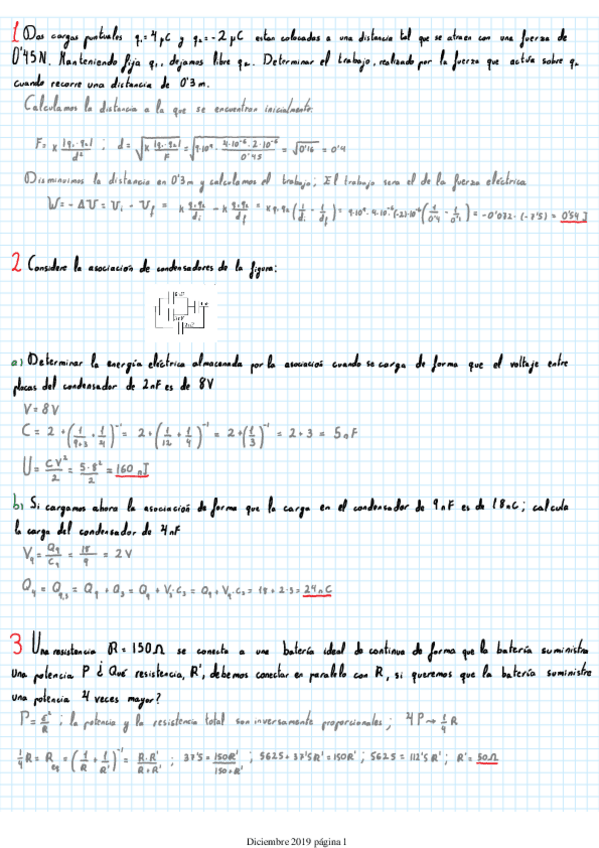 1 Dos cargas puntuales q₁=4 μC y q₂=-2 μC estan colocadas a una distancia tal que se atraen con una fuerza de
0'45N. Manteniendo fija q₁, dejamos libre q₂. Determinar el trabajo, realizado por la fuerza que actúa sobre q₂
cuando recorre una distancia de 0'3m.
Calculamos la distancia a la que se encuentran inicialmente:
F = K |q₁·q₂|/d² ; d = √(K |q₁·q₂|/F) = √(9·10⁹ · 4·10⁻⁶·2·10⁻⁶/0'45) = √0'16 = 0'4
Disminuimos la distancia en 0'3m y calculamos el trabajo; El trabajo sera el de la fuerza eléctrica
W = -ΔU = Uᵢ - U_f = K q₁q₂/dᵢ - K q₁q₂/d_f = Kq₁q₂(1/dᵢ - 1/d_f) = 9·10⁹·4·10⁻⁶·(-2)·10⁻⁶(1/0'4 - 1/0'1) = -0'072·(-7'5) = 0'54 J
2 Considere la asociación de condensadores de la figura:
a) Determinar la energía eléctrica almacenada por la asociación cuando se carga de forma que el voltaje entre
placas del condensador de 2nF es de 8V
V = 8V
C = 2 + (1/(9+3) + 1/4)⁻¹ = 2 + (1/12 + 1/4)⁻¹ = 2 + (1/3)⁻¹ = 2+3 = 5nF
U = CV²/2 = 5·8²/2 = 160 nJ
b) Si cargamos ahora la asociación de forma que la carga en el condensador de 9nF es de 18nC; calcula
la carga del condensador de 4nF
V₉ = Q₉/C₉ = 18/9 = 2V
Q₄ = Q₉,₃ = Q₉ + Q₃ = Q₉ + V₃·C₃ = Q₉ + V₉·C₃ = 18+2·3 = 24nC
3 Una resistencia R = 150Ω se conecta a una batería ideal de continua de forma que la batería suministra
una potencia P ¿Qué resistencia, R', debemos conectar en paralelo con R, si queremos que la batería suministre
una potencia 4 veces mayor?
P = ε²/R ; la potencia y la resistencia total son inversamente proporcionales; 4P → 1/4 R
1/4 R = R_eq = (1/R + 1/R')⁻¹ = R·R'/(R+R') ; 37'5 = 150R'/(150+R') ; 5625 + 37'5R' = 150R' ; 5625 = 112'5R' ; R' = 50Ω
Diciembre 2019 página 1